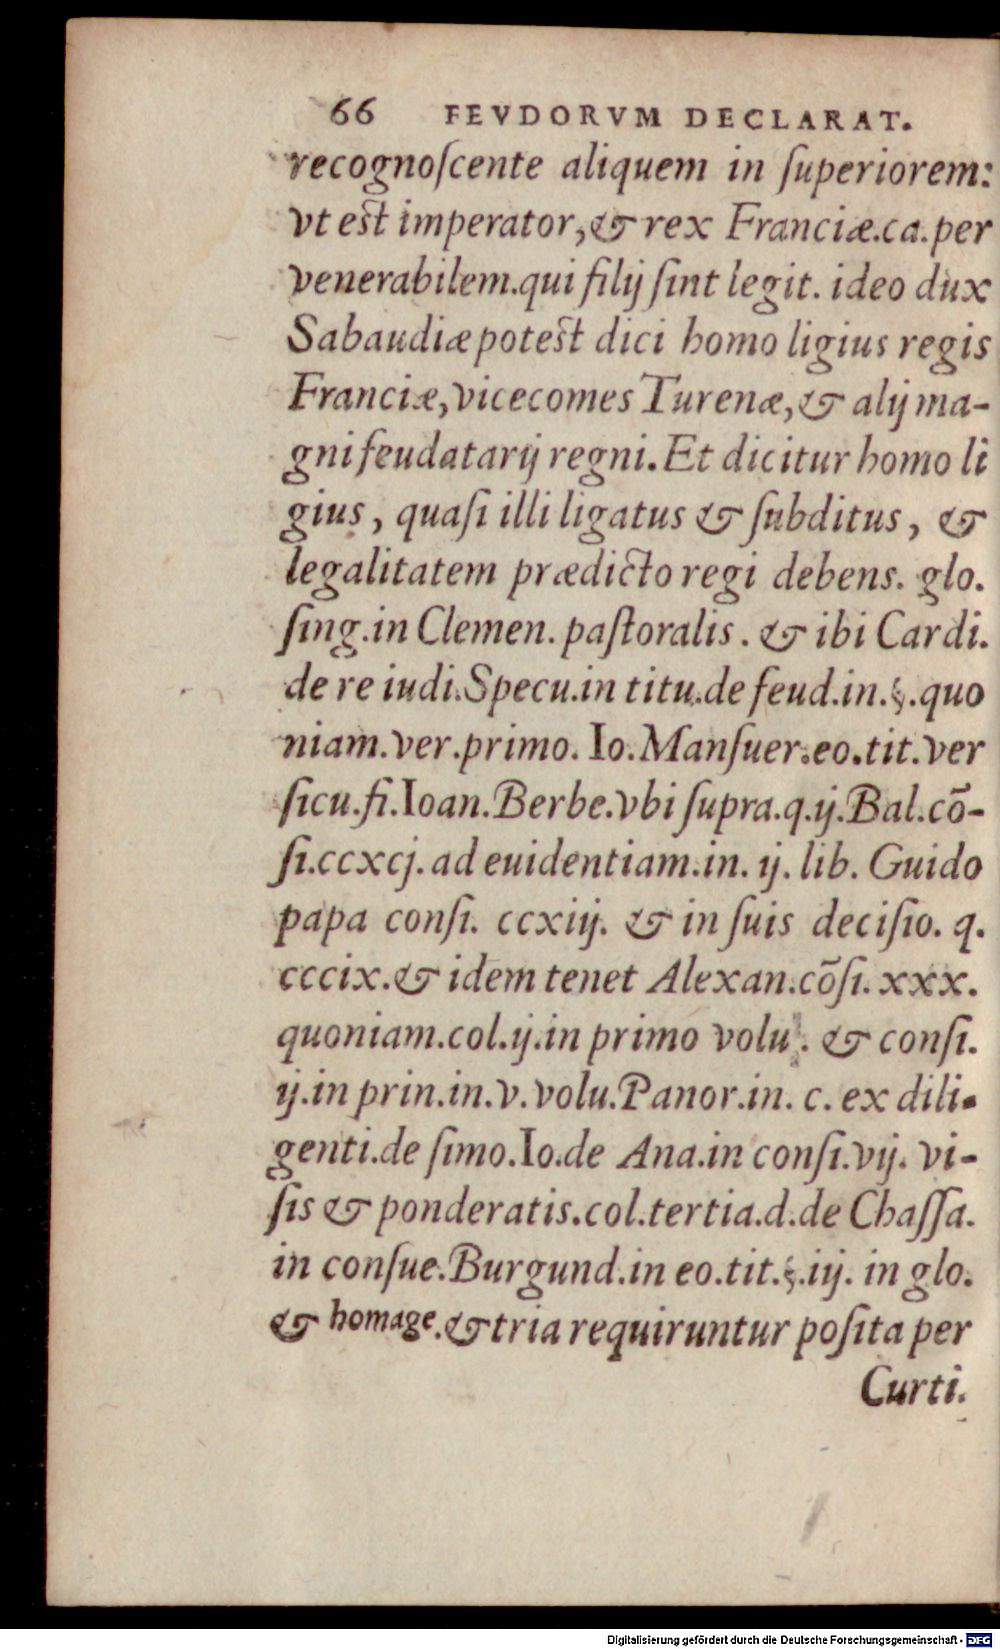 66 FEVDORVM DECLARAT.
recognoſcente aliquem in ſuperiorem:
vt est imperator, & rex Franciæ.ca.per
venerabilem.qui filij ſint legit. ideo dux
Sabaudiæ potest dici homo ligius regis
Franciæ, vicecomes Turenæ, & alij ma-
gni feudatarij regni. Et dicitur homo li
gius, quaſi illi ligatus & ſubditus, &
legalitatem prædicto regi debens. glo.
ſing.in Clemen. paſtoralis. & ibi Cardi.
de re iudi.Specu.in titu.de feud.in.§.quo
niam.ver.primo. Io.Manſuer.eo.tit.ver
ſicu.fi.Ioan.Berbe.vbi ſupra.q.ij.Bal.cō-
ſi.ccxcj. ad euidentiam.in. ij. lib. Guido
papa conſi. ccxiij. & in ſuis deciſio. q.
cccix.& idem tenet Alexan.cōſi. xxx.
quoniam.col.ij.in primo volu. & conſi.
ij.in prin.in.v.volu.Panor.in. c. ex dili-
genti.de ſimo.Io.de Ana.in conſi.vij. vi-
ſis & ponderatis.col.tertia.d.de Chaſſa.
in conſue.Burgund.in eo.tit.§.iij. in glo.
& homage.& tria requiruntur poſita per
Curti.
Digitalisierung gefördert durch die Deutsche Forschungsgemeinschaft - DFG